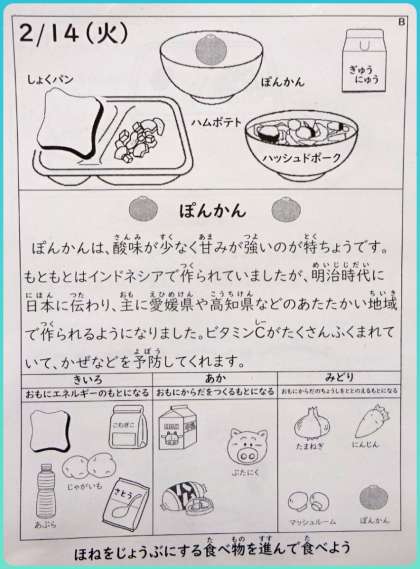 2/14(火)
B
しょくパン
ぽんかん
ぎゅう
にゅう
ハムポテト
ハッシュドポーク
ぽんかん
ぽんかんは、酸味が少なく甘みが強いのが特ちょうです。
もともとはインドネシアで作られていましたが、明治時代に
日本に伝わり、主に愛媛県や高知県などのあたたかい地域
で作られるようになりました。ビタミンCがたくさんふくまれて
いて、かぜなどを予防してくれます。
きいろ
あか
みどり
おもにエネルギーのもとになる
おもにからだをつくるもとになる
おもにからだのちょうしをととのえるもとになる
こむぎこ
じゃがいも
あぶら
さとう
ぶたにく
たまねぎ
にんじん
マッシュルーム
ぽんかん
ほねをじょうぶにする食べ物を進んで食べよう